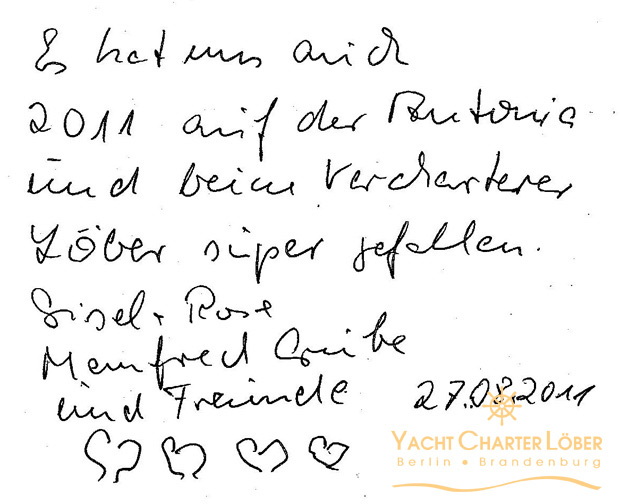 Es hat uns auch
2011 auf der Antonia
und beim Vercharterer
Löber super gefallen.
Gisel. Rose
Manfred Grube
und Freunde 27.08.2011
YACHT CHARTER LÖBER
Berlin • Brandenburg